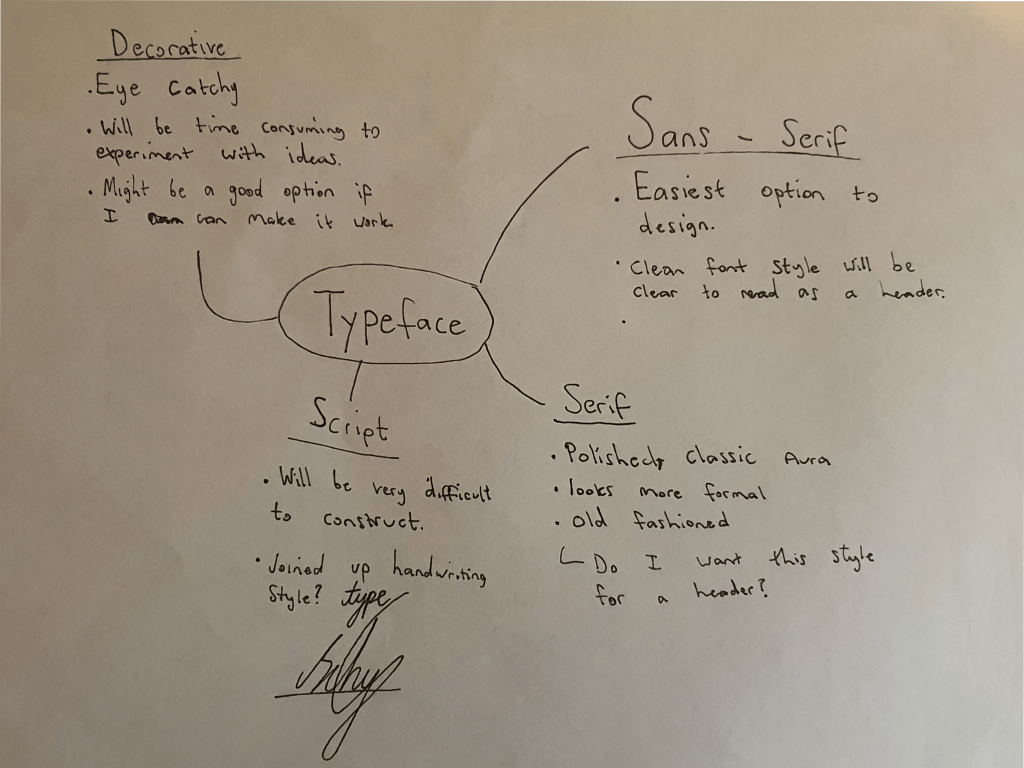 Decorative
. Eye Catchy
. Will be time consuming to
experiment with ideas.
. Might be a good option if
I can make it work.
Sans - Serif
. Easiest option to
design.
. Clean font style will be
clear to read as a header.
.
Typeface
Script
. Will be very difficult
to construct.
. Joined up handwriting
Style? type
Serif
. Polished, classic Aura
. looks more formal
. old fashioned
Do I want this style
for a header?